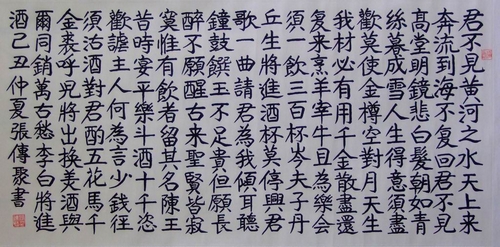 君不見黃河之水天上来
奔流到海不復回君不見
高堂明鏡悲白髮朝如青
絲暮成雪人生得意須盡
歡莫使金樽空對月天生
我材必有用千金散盡還
复来烹羊宰牛且為樂會
須一飲三百杯岑夫子丹
丘生將進酒杯莫停與君
歌一曲請君為我傾耳聽
鐘鼓饌玉不足貴但願長
醉不願醒古来聖賢皆寂
寞惟有飲者留其名陳王
昔時宴平樂斗酒十千恣
歡謔主人何為言少錢徑
須沽酒對君酌五花馬千
金裘呼兒將出換美酒與
爾同銷萬古愁李白將進
酒己丑仲夏張傳聚書